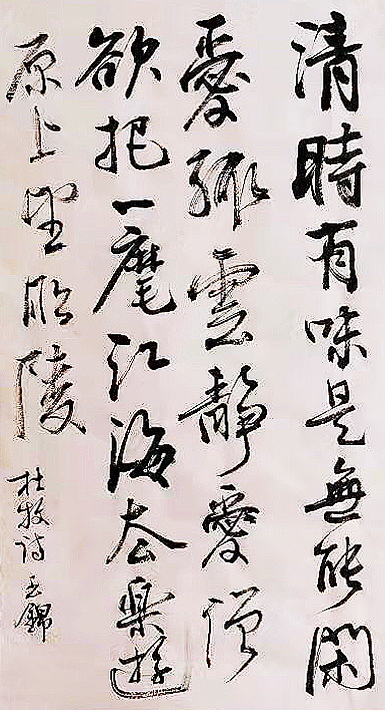 清時有味是無能閑
愛孤雲靜愛僧
欲把一麾江海去樂遊
原上望昭陵
杜牧詩 錦